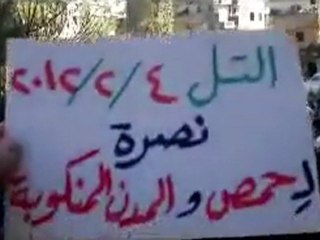 التل ٢٠١٢/٢/٤
نصرة
لحمص و المدن المنكوبة